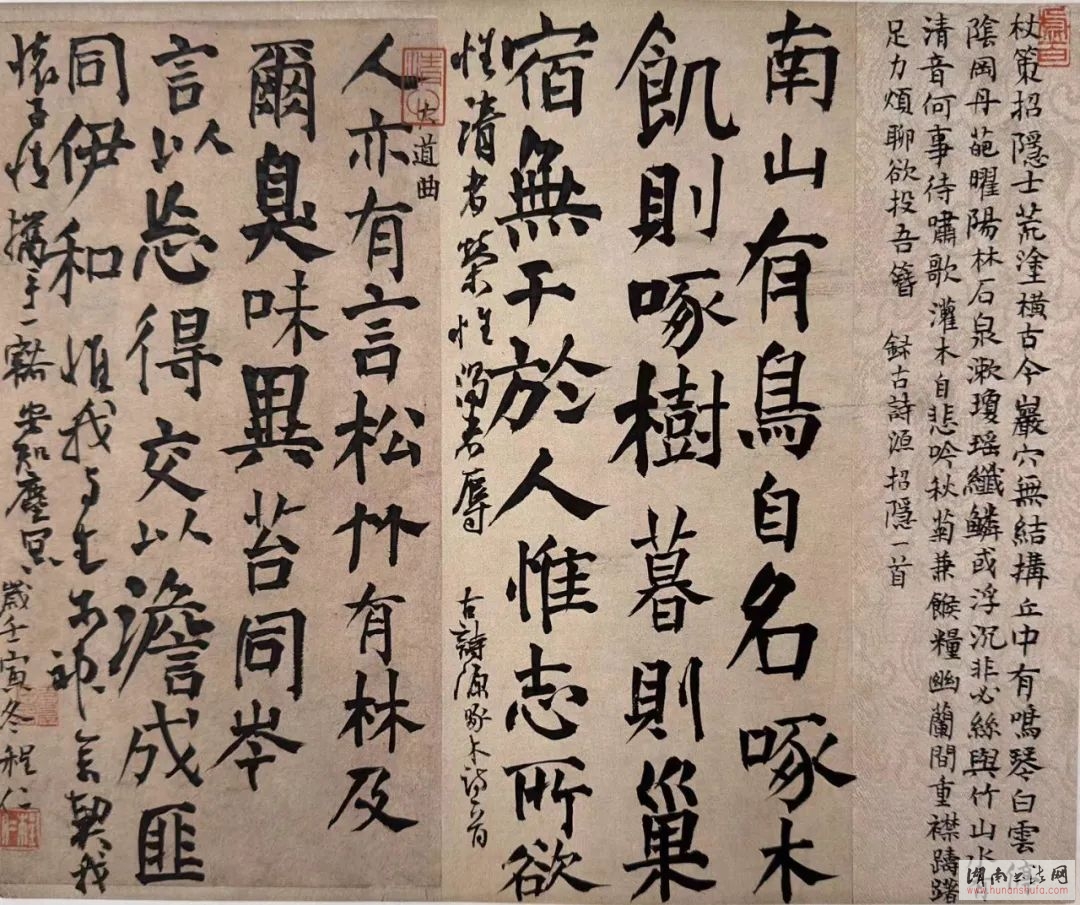 杖策招隱士荒塗橫古今巖穴無結構丘中有鳴琴白雲
陰岡丹葩曜陽林石泉漱瓊瑤纖鱗或浮沉非必絲與竹山水
清音何事待嘯歌灌木自悲吟秋菊兼餱糧幽蘭間重襟躊躇
足力煩聊欲投吾簪 録古詩源招隱一首
南山有鳥自名啄木
飢則啄樹暮則巢
宿無干於人惟志所欲
性清者榮性濁者辱 古詩源啄木詩一首
大道曲
人亦有言松竹有林及
爾臭味異苔同岑
言以忘得交以澹成匪
同伊和惟我与生尔神余契我
懷子情攜手一豁安知塵冥 歲壬寅冬程仁
湖南书法网
www.hunanshufa.com